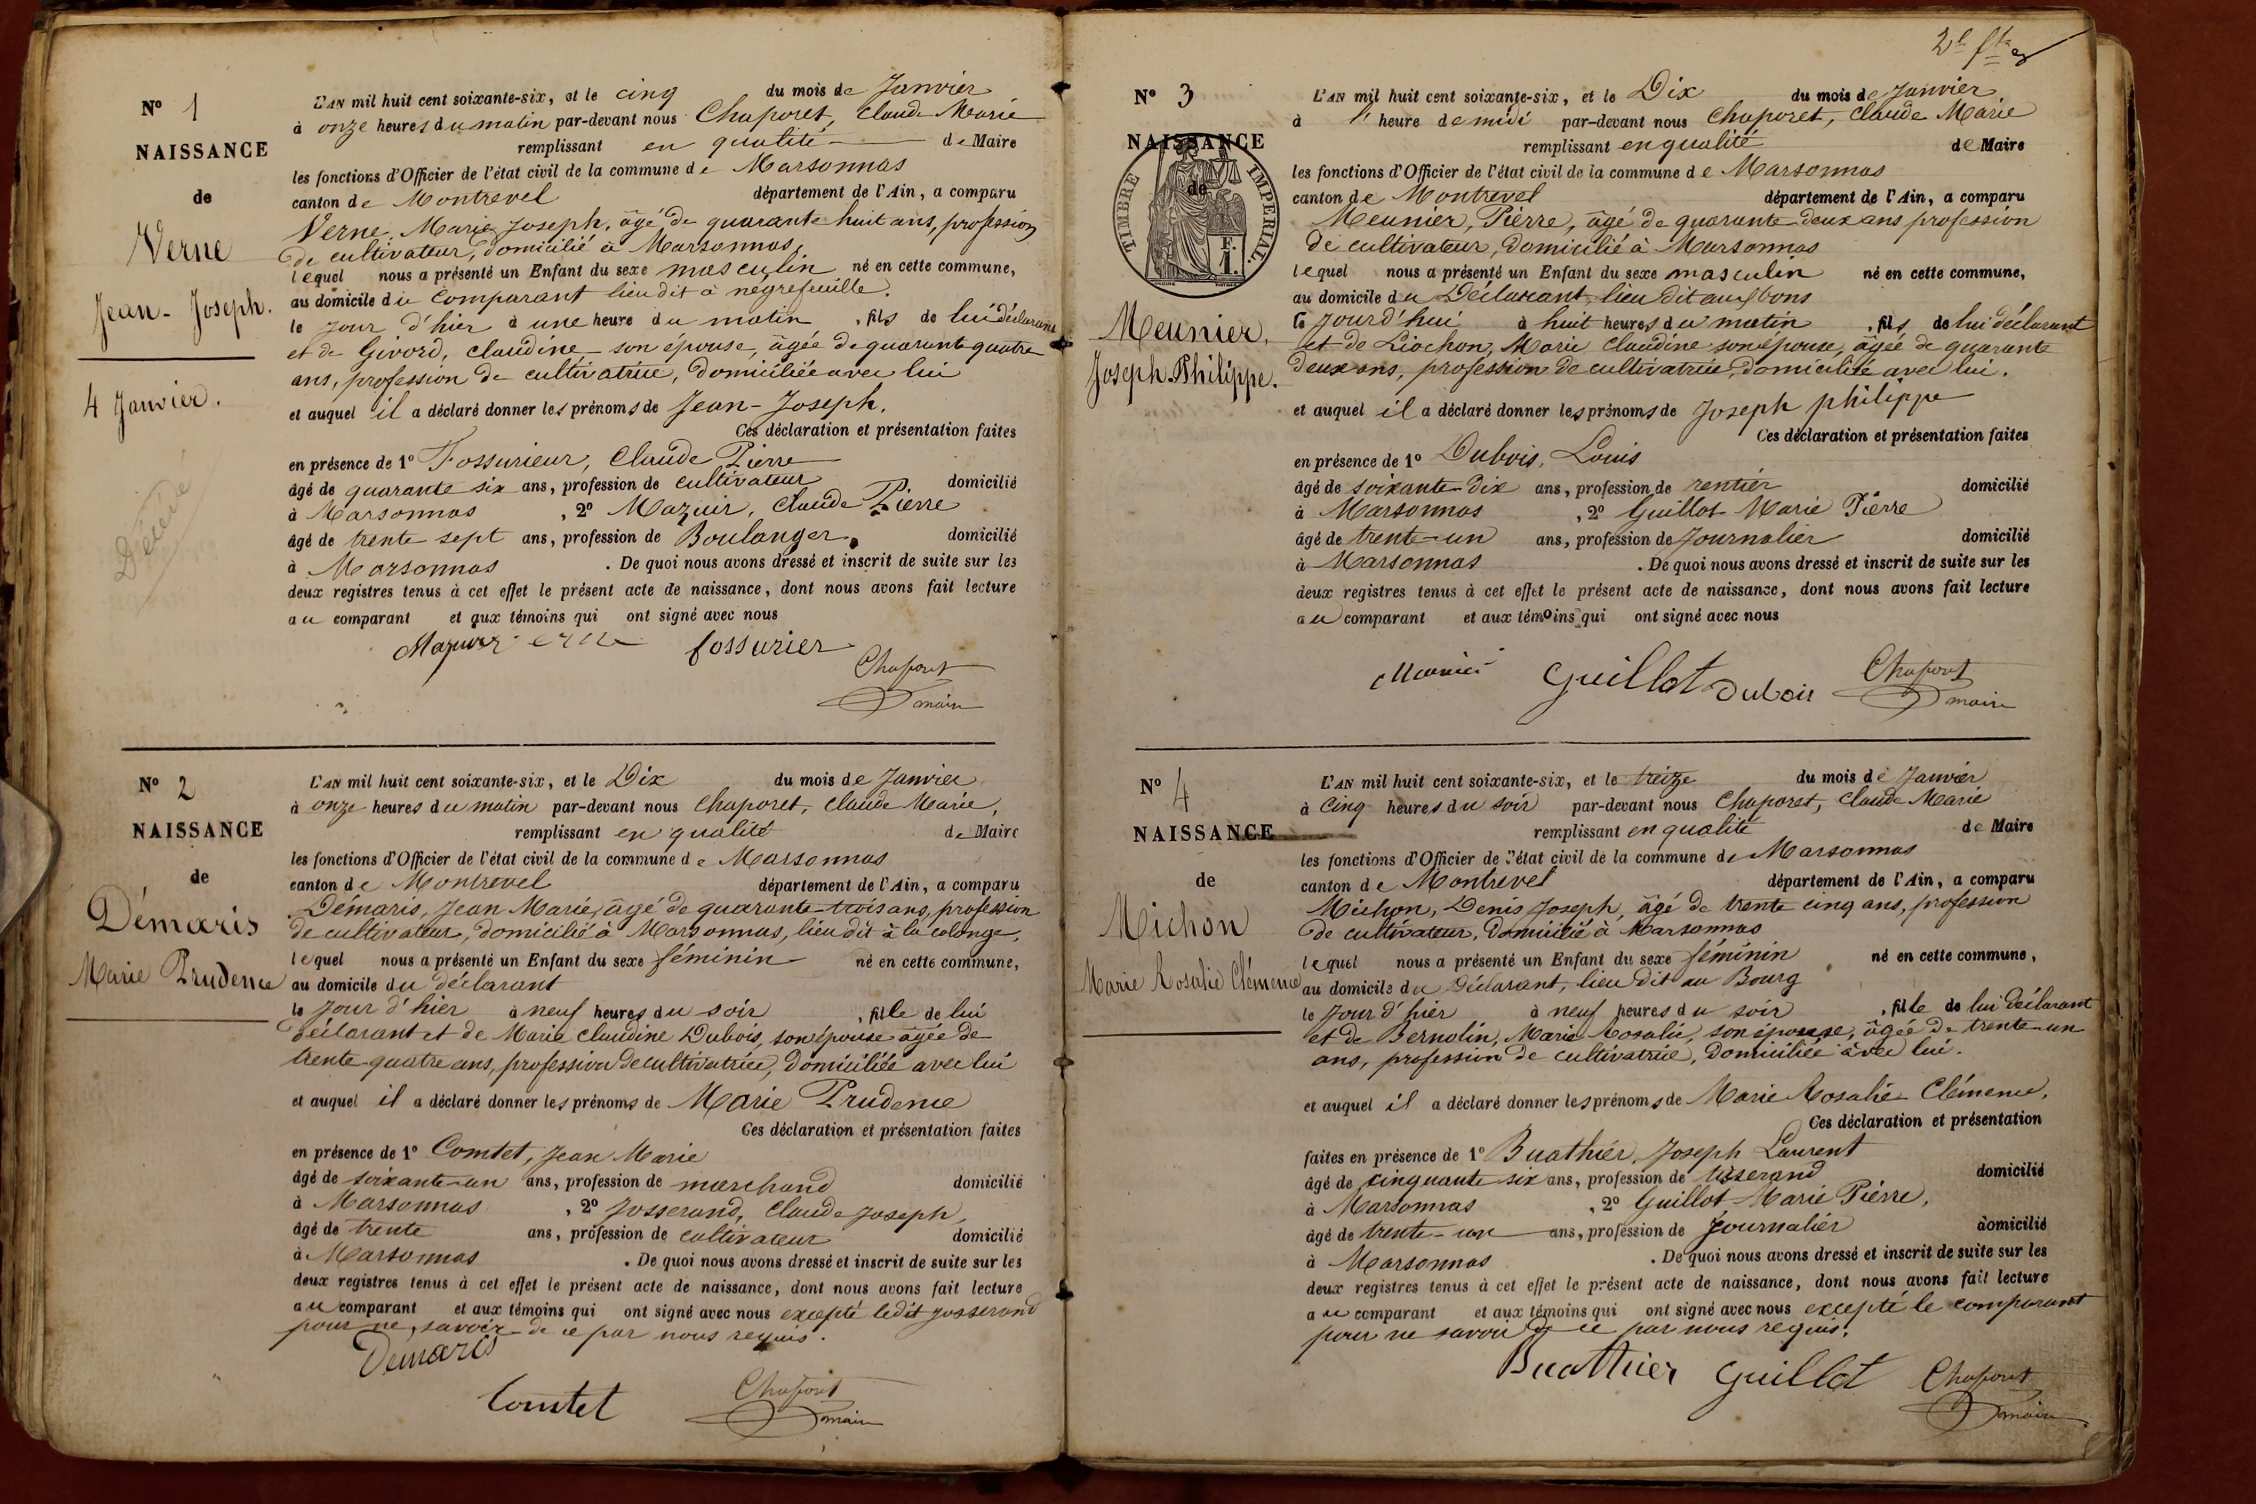 N° 1
NAISSANCE
de
Verne
Jean-Joseph.
4 Janvier.
Décédé
L'AN mil huit cent soixante-six, et le cinq du mois de Janvier
à onze heures du matin par-devant nous Chaporet, Claude Marie
remplissant en qualité de Maire
les fonctions d'Officier de l'état civil de la commune de Marsonnas
canton de Montrevel département de l'Ain, a comparu
Verne, Marie Joseph, âgé de quarante huit ans, profession
de cultivateur, domicilié à Marsonnas,
lequel nous a présenté un Enfant du sexe masculin né en cette commune,
au domicile du comparant lieu dit à négrefeuille.
le jour d'hier à une heure du matin, fils de lui déclarant
et de Givord, Claudine son épouse, âgée de quarante quatre
ans, profession de cultivatrice, domiciliée avec lui
et auquel il a déclaré donner les prénoms de Jean-Joseph.
Ces déclaration et présentation faites
en présence de 1° Fossurieur, Claude Pierre
âgé de quarante six ans, profession de cultivateur domicilié
à Marsonnas, 2° Mazuir, Claude Pierre
âgé de trente sept ans, profession de Boulanger, domicilié
à Marsonnas. De quoi nous avons dressé et inscrit de suite sur les
deux registres tenus à cet effet le présent acte de naissance, dont nous avons fait lecture
au comparant et aux témoins qui ont signé avec nous
Mazuir erne fossurier
Chaporet
maire
N° 2
NAISSANCE
de
Démaris
Marie Prudence
L'AN mil huit cent soixante-six, et le Dix du mois de Janvier
à onze heures du matin par-devant nous Chaporet, Claude Marie,
remplissant en qualité de Maire
les fonctions d'Officier de l'état civil de la commune de Marsonnas
canton de Montrevel département de l'Ain, a comparu
Démaris, Jean Marie, âgé de quarante-trois ans, profession
de cultivateur, domicilié à Marsonnas, lieu dit à la colonge,
lequel nous a présenté un Enfant du sexe féminin né en cette commune,
au domicile du déclarant
le jour d'hier à neuf heures du soir, fille de lui
déclarant et de Marie Claudine Dubois, son épouse âgée de
trente-quatre ans, profession de cultivatrice, domiciliée avec lui
et auquel il a déclaré donner les prénoms de Marie Prudence
Ces déclaration et présentation faites
en présence de 1° Comtet, Jean Marie
âgé de soixante-un ans, profession de marchand domicilié
à Marsonnas, 2° Josserand, Claude Joseph,
âgé de trente ans, profession de cultivateur domicilié
à Marsonnas. De quoi nous avons dressé et inscrit de suite sur les
deux registres tenus à cet effet le présent acte de naissance, dont nous avons fait lecture
au comparant et aux témoins qui ont signé avec nous excepté ledit Josserand
pour ne, savoir de ce par nous requis.
Demaris
Comtet Chaporet
maire
N° 3
NAISSANCE
de
TIMBRE IMPERIAL.
F.
1.
Meunier,
Joseph-Philippe.
L'AN mil huit cent soixante-six, et le Dix du mois de Janvier
à l'heure de midi par-devant nous Chaporet, Claude Marie
remplissant en qualité de Maire
les fonctions d'Officier de l'état civil de la commune de Marsonnas
canton de Montrevel département de l'Ain, a comparu
Meunier, Pierre, âgé de quarante-deux ans profession
de cultivateur, domicilié à Marsonnas
lequel nous a présenté un Enfant du sexe masculin né en cette commune,
au domicile du Déclarant, lieu dit
le jourd'hui à huit heures du matin, fils de lui déclarant
et de Liochon, Marie Claudine son épouse, âgée de quarante
deux ans, profession de cultivatrice, domiciliée avec lui.
et auquel il a déclaré donner les prénoms de Joseph philippe
Ces déclaration et présentation faites
en présence de 1° Dubois, Louis
âgé de soixante-dix ans, profession de rentier domicilié
à Marsonnas, 2° Guillot Marie Pierre
âgé de trente-un ans, profession de Journalier domicilié
à Marsonnas. De quoi nous avons dressé et inscrit de suite sur les
deux registres tenus à cet effet le présent acte de naissance, dont nous avons fait lecture
au comparant et aux témoins qui ont signé avec nous
Meunier Guillot Dubois Chaporet
maire
N° 4
NAISSANCE
de
Michon
Marie Rosalie Clémence
L'AN mil huit cent soixante-six, et le treize du mois de Janvier
à cinq heures du soir par-devant nous Chaporet, Claude Marie
remplissant en qualité de Maire
les fonctions d'Officier de l'état civil de la commune de Marsonnas
canton de Montrevel département de l'Ain, a comparu
Michon, Denis Joseph, âgé de trente cinq ans, profession
de cultivateur, domicilié à Marsonnas
lequel nous a présenté un Enfant du sexe féminin né en cette commune,
au domicile du Déclarant, lieu dit au Bourg
le jour d'hier à neuf heures du soir, fille de lui déclarant
et de Bernolin, Marie Rosalie, son épouse, âgée de trente-un
ans, profession de cultivatrice, domiciliée avec lui.
et auquel il a déclaré donner les prénoms de Marie Rosalie Clémence,
Ces déclaration et présentation
faites en présence de 1° Buathier, Joseph Laurent
âgé de cinquante six ans, profession de tisserand domicilié
à Marsonnas, 2° Guillot Marie Pierre,
âgé de trente-un ans, profession de Journalier domicilié
à Marsonnas. De quoi nous avons dressé et inscrit de suite sur les
deux registres tenus à cet effet le présent acte de naissance, dont nous avons fait lecture
au comparant et aux témoins qui ont signé avec nous excepté le comparant
pour ne savoir de ce par nous requis.
Buathier Guillot Chaporet
maire